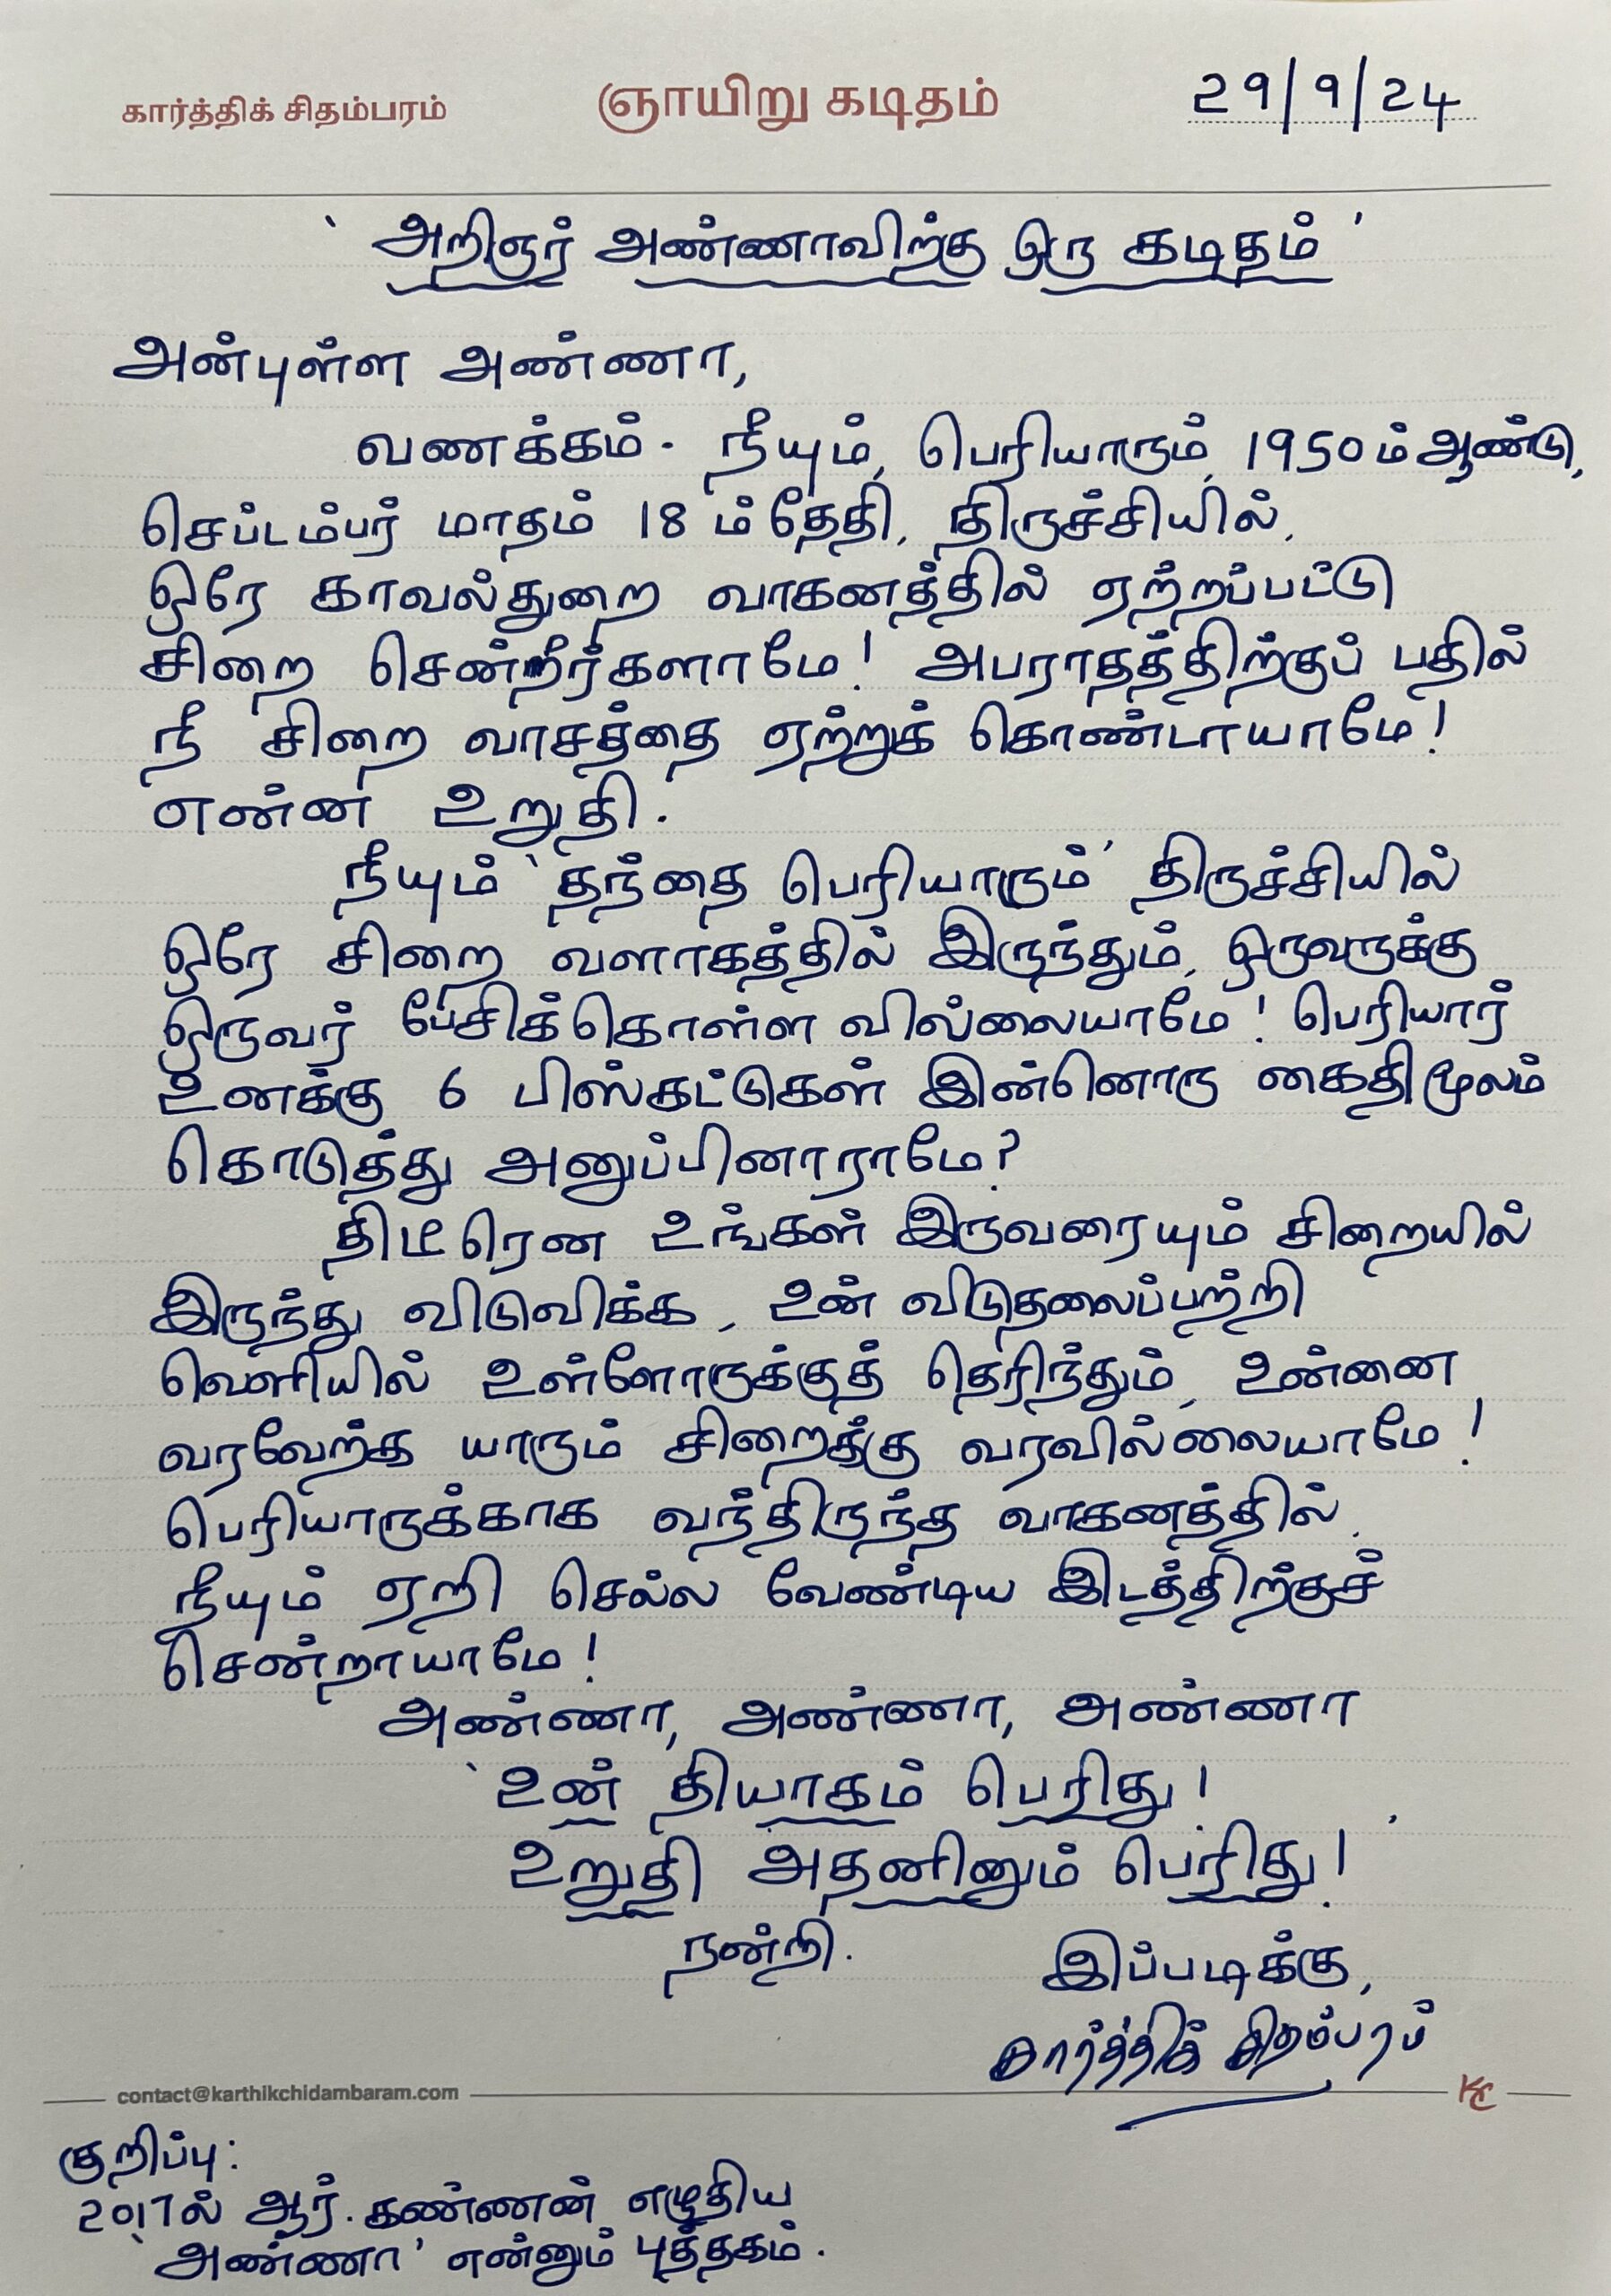 கார்த்திக் சிதம்பரம் ஞாயிறு கடிதம் 29/9/24
‘அறிஞர் அண்ணாவிற்கு ஒரு கடிதம்’
அன்புள்ள அண்ணா,
வணக்கம். நீயும், பெரியாரும், 1950ம் ஆண்டு,
செப்டம்பர் மாதம் 18ம் தேதி, திருச்சியில்,
ஒரே காவல்துறை வாகனத்தில் ஏற்றப்பட்டு
சிறை சென்றீர்களாமே! அபராதத்திற்குப் பதில்
நீ சிறை வாசத்தை ஏற்றுக் கொண்டாயாமே!
என்ன உறுதி.
நீயும் ‘தந்தை பெரியாரும்’ திருச்சியில்
ஒரே சிறை வளாகத்தில் இருந்தும், ஒருவருக்கு
ஒருவர் பேசிக்கொள்ள வில்லையாமே! பெரியார்
உனக்கு 6 பிஸ்கட்டுகள் இன்னொரு கைதி மூலம்
கொடுத்து அனுப்பினாராமே?
திடீரென உங்கள் இருவரையும் சிறையில்
இருந்து விடுவிக்க, உன் விடுதலைப்பற்றி
வெளியில் உள்ளோருக்குத் தெரிந்தும், உன்னை
வரவேற்க யாரும் சிறைக்கு வரவில்லையாமே!
பெரியாருக்காக வந்திருந்த வாகனத்தில்,
நீயும் ஏறி செல்ல வேண்டிய இடத்திற்குச்
சென்றாயாமே!
அண்ணா, அண்ணா, அண்ணா
‘உன் தியாகம் பெரிது!
உறுதி அதனினும் பெரிது!’
நன்றி. இப்படிக்கு,
கார்த்திக் சிதம்பரம்
contact@karthikchidambaram.com KC
குறிப்பு:
2017ல் ஆர். கண்ணன் எழுதிய
‘அண்ணா’ என்னும் புத்தகம்.